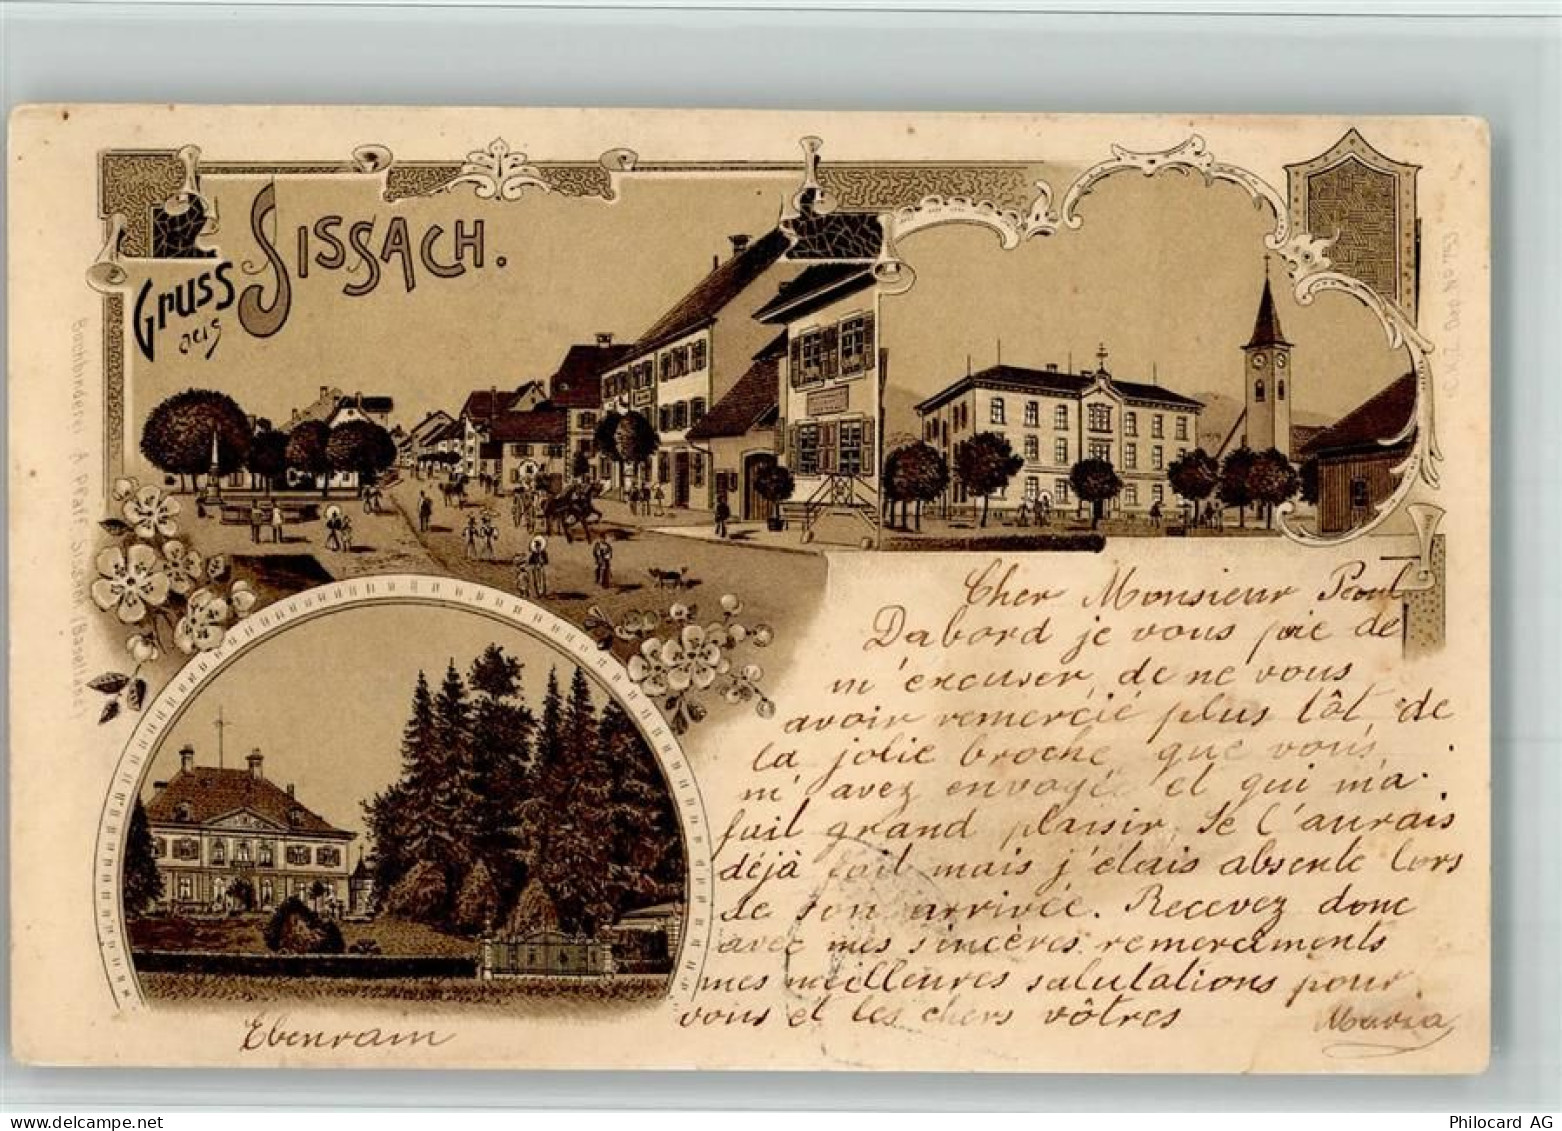 Gruss
aus
SISSACH.
Buchbinderei A. Pfaff Sissach (Baselland)
C.K.Z. Dep. No 1753
Cher Monsieur Paul
Dabord je vous prie de
m'excuser, de ne vous
avoir remercié plus tôt, de
la jolie broche que vous
m'avez envoyée et qui m'a
fait grand plaisir, Je l'aurais
déjà fait mais j'étais absente lors
de son arrivée. Recevez donc
avec mes sincères remerciments
mes meilleures salutations pour
vous et les chers vôtres
Maria
Ebenrain
Philocard AG